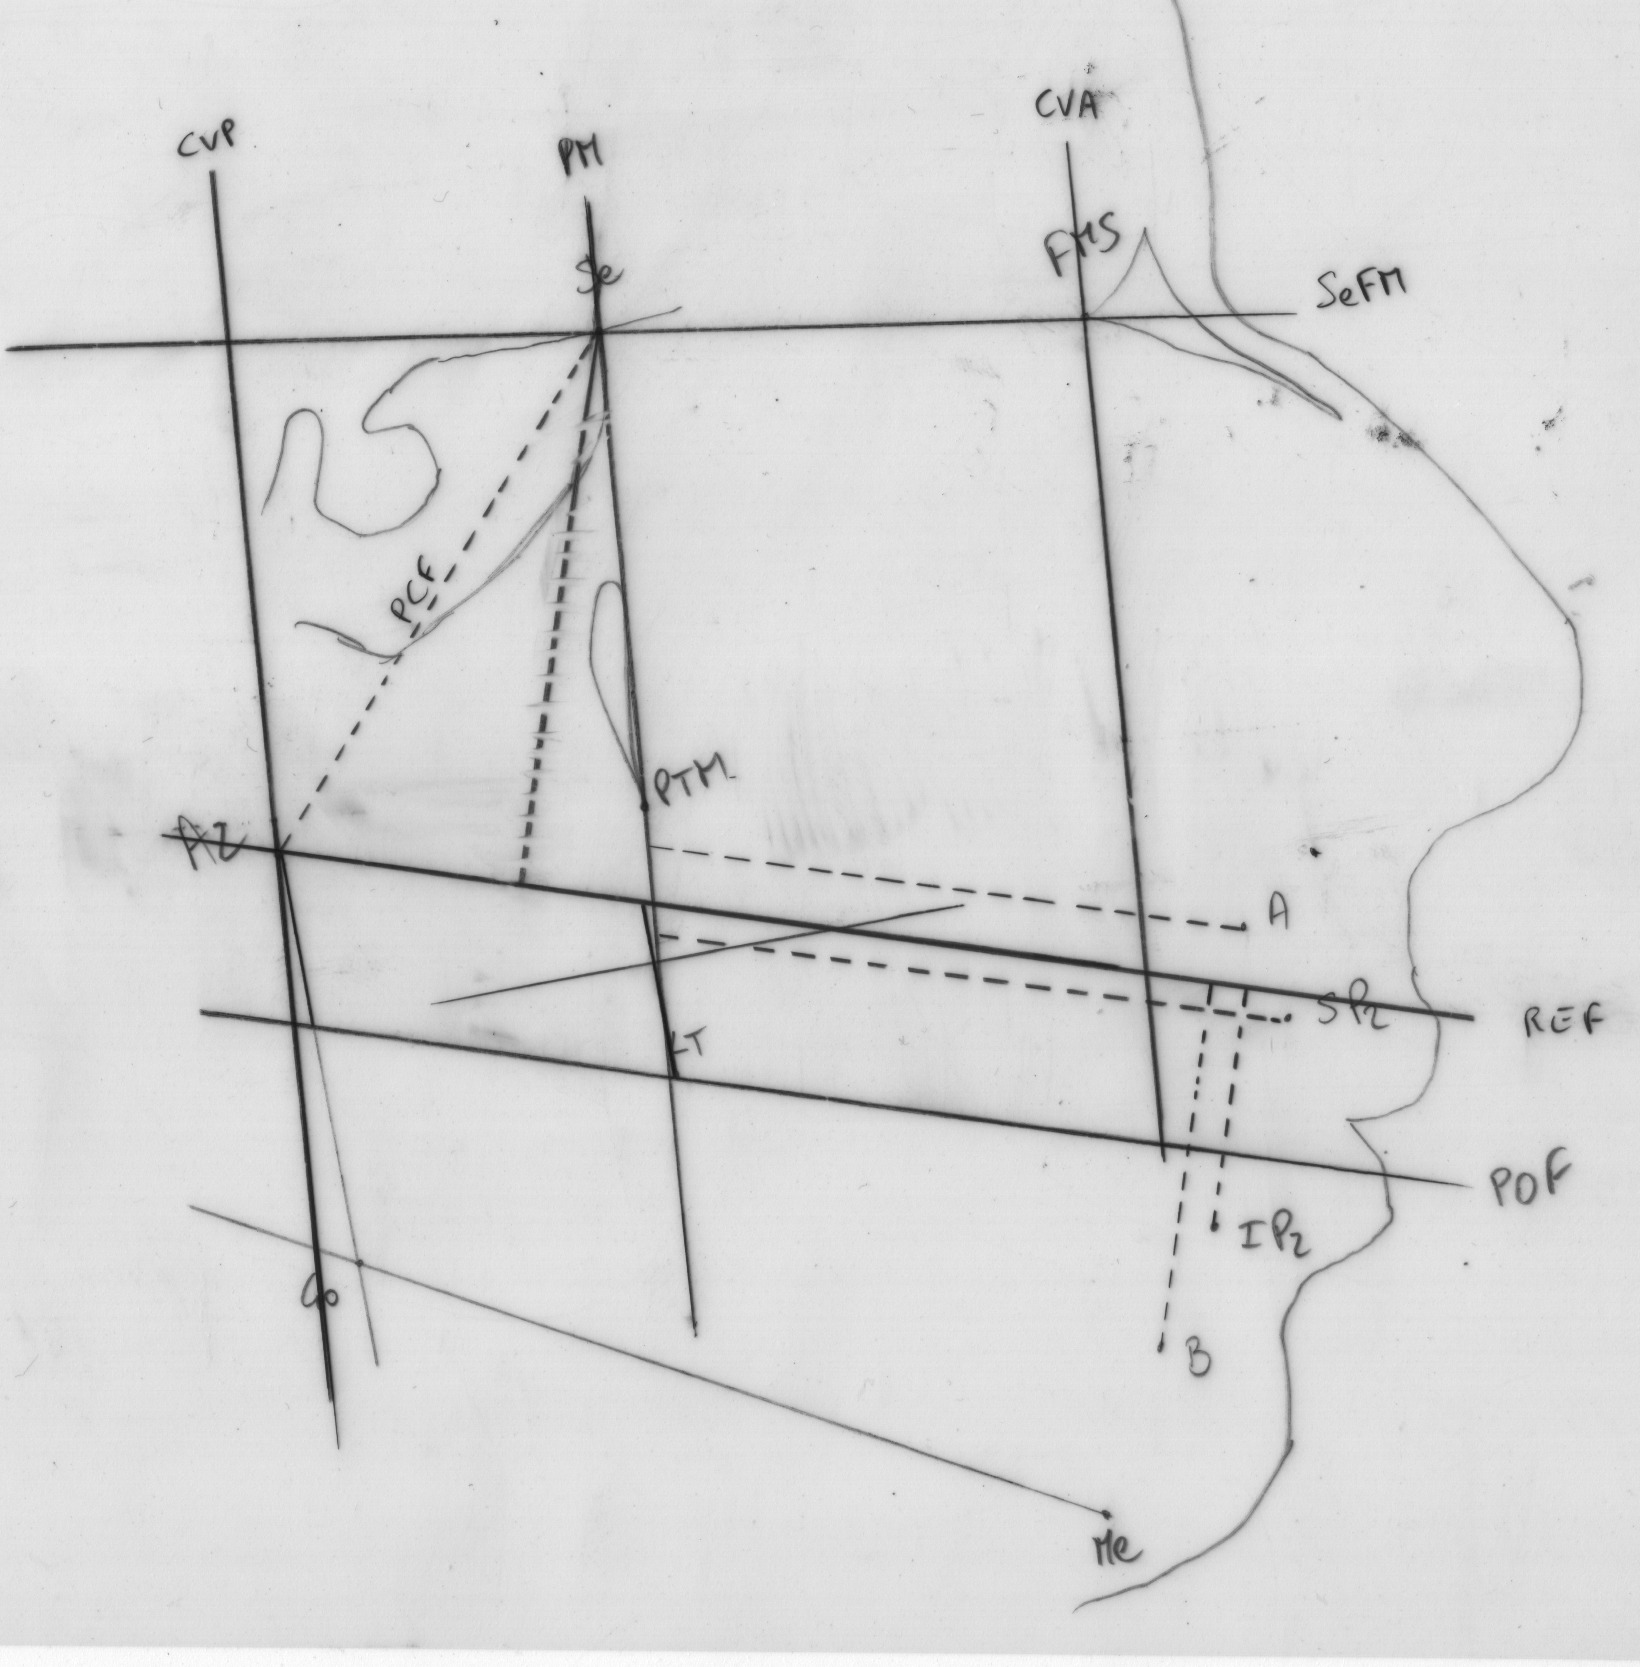 CVA
CVP
PM
FMS
Se
SeFM
PCF
PTM
AZ
A
SP2
REF
LT
POF
IP2
Go
B
Me